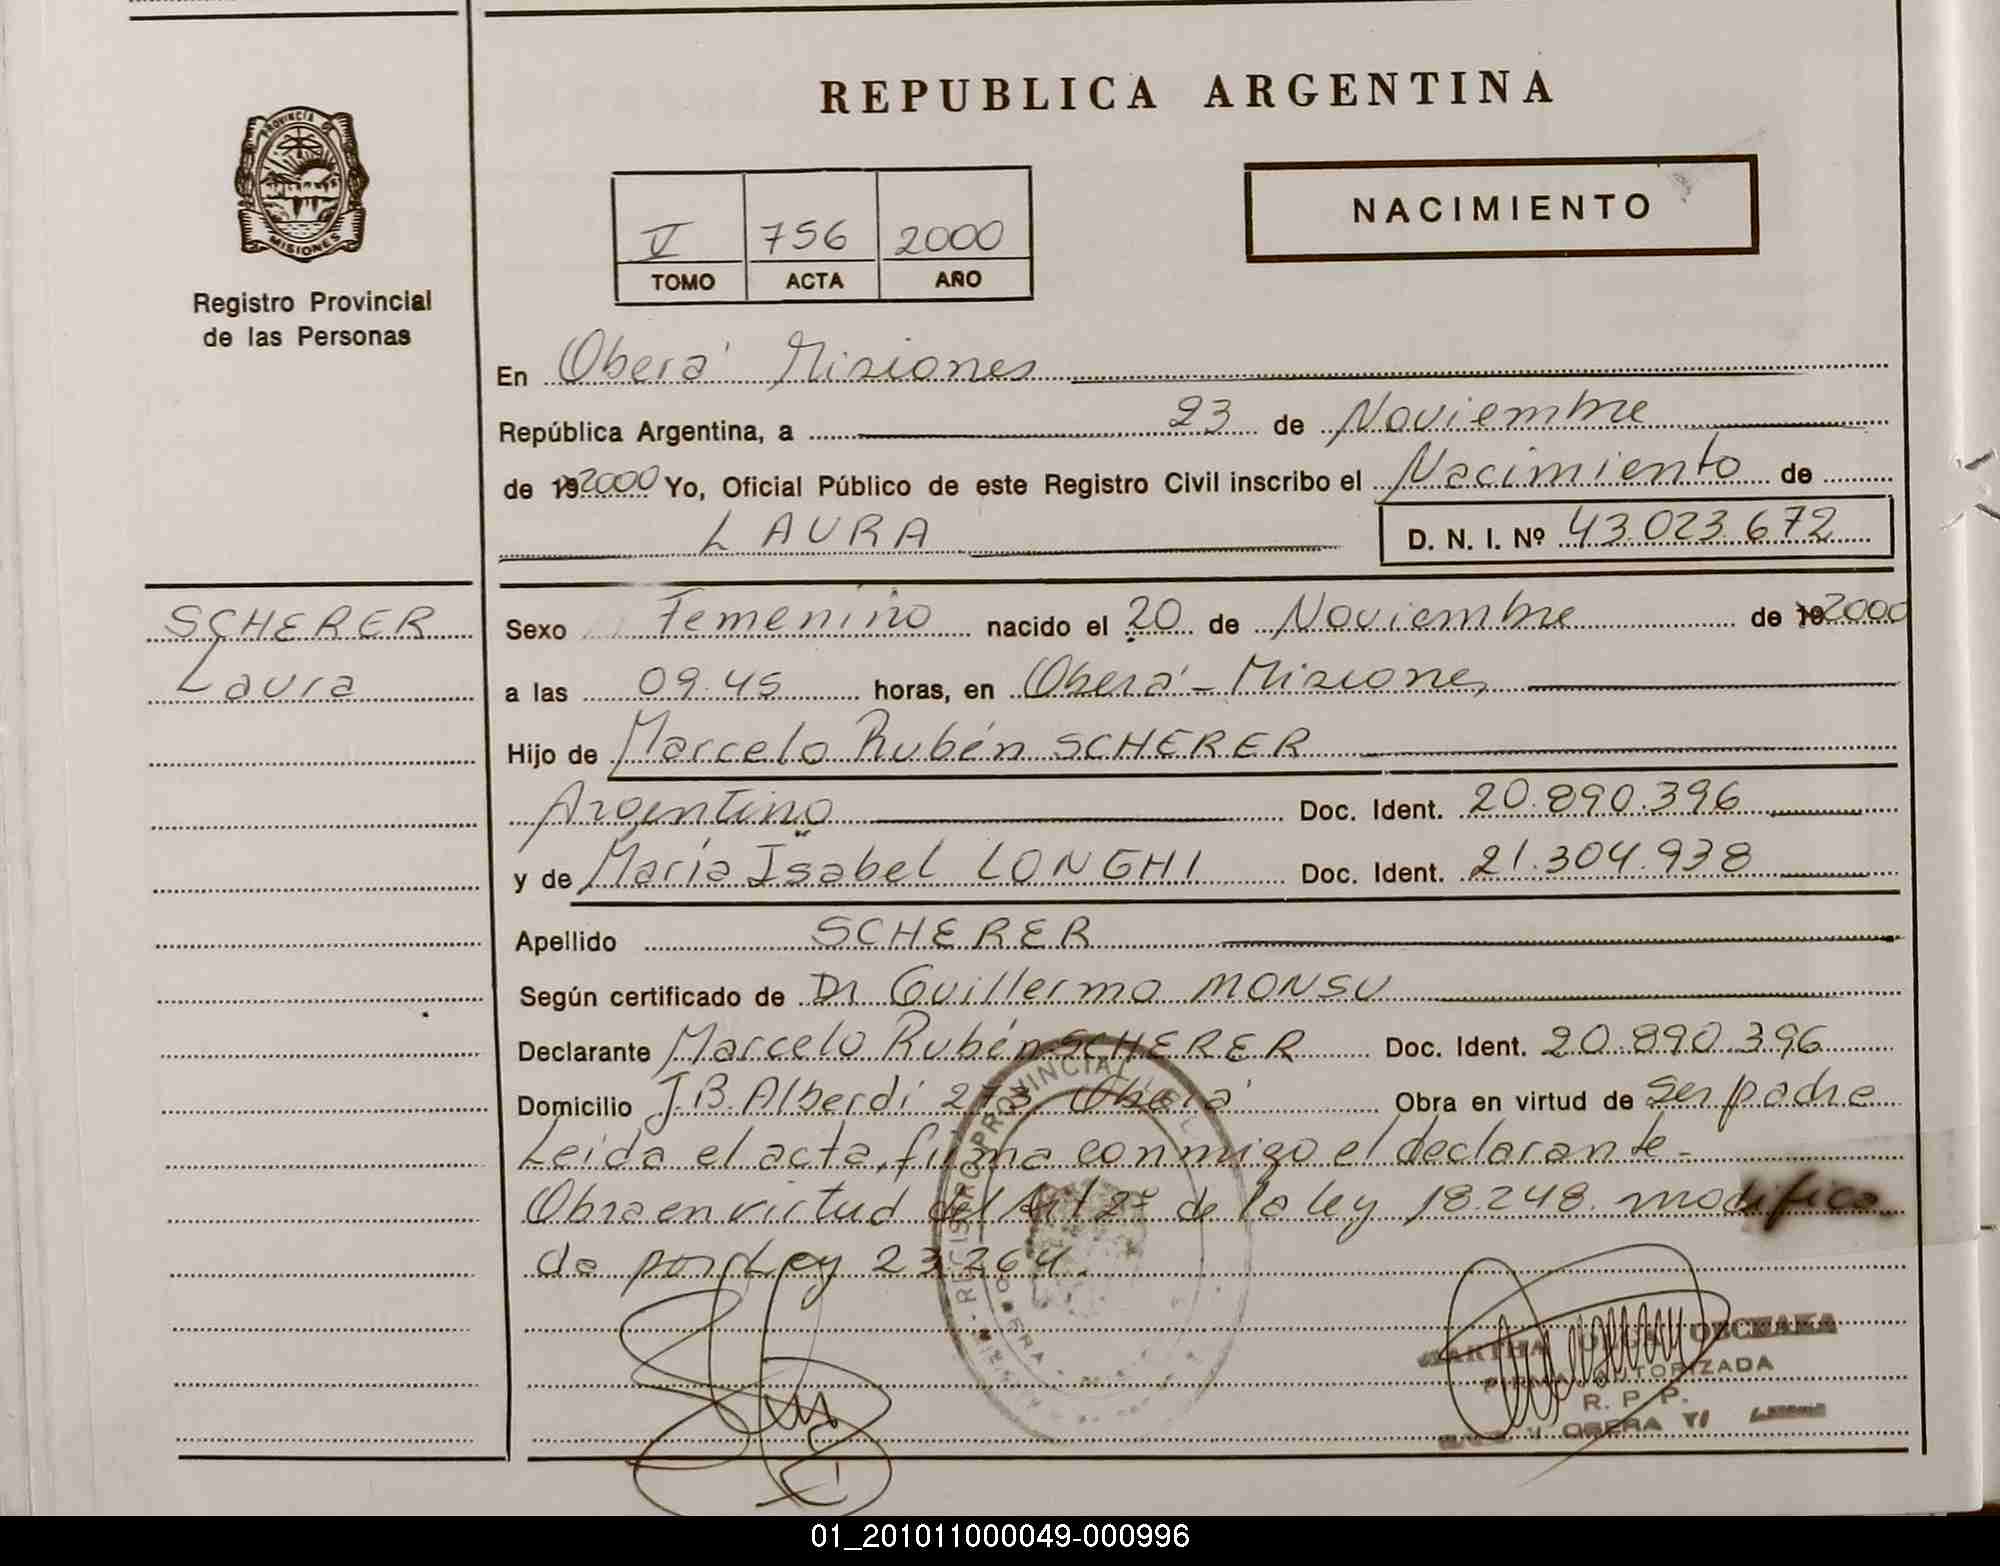 REPUBLICA ARGENTINA
PROVINCIA DE
MISIONES
Registro Provincial
de las Personas
V 756 2000
TOMO ACTA AÑO
NACIMIENTO
En Oberá Misiones
República Argentina, a 23 de Noviembre
de 192000 Yo, Oficial Público de este Registro Civil inscribo el Nacimiento de
LAURA D. N. I. Nº 43.023.672
SCHERER
Laura
Sexo Femenino nacido el 20 de Noviembre de 192000
a las 09.45 horas, en Oberá - Misiones
Hijo de Marcelo Rubén SCHERER
Argentino Doc. Ident. 20.890.396
y de María Isabel LONGHI Doc. Ident. 21.304.938
Apellido SCHERER
Según certificado de Dr Guillermo MONSU
Declarante Marcelo Rubén SCHERER Doc. Ident. 20.890.396
Domicilio J.B. Alberdi 273 Oberá Obra en virtud de Ser padre
Leida el acta, firma conmigo el declarante -
Obra en virtud del Art 2º de la ley 18.248. modifica
da por Ley 23.264.
REGISTRO PROVINCIAL DE L
MARTHA OBCHAKA
FIRMA AUTORIZADA
R. P. P.
OBERA
01_201011000049-000996